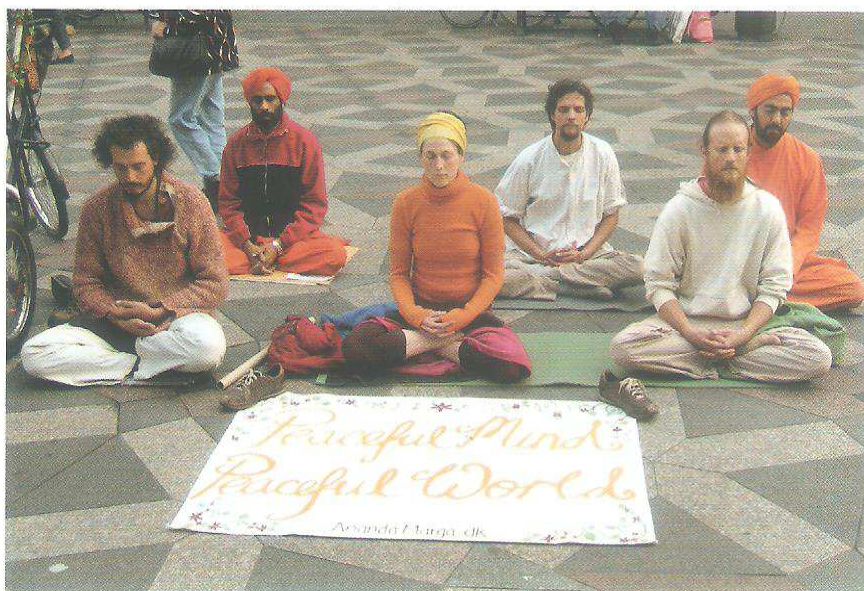 Peaceful Mind
Peaceful World
Ananda Marga .dk